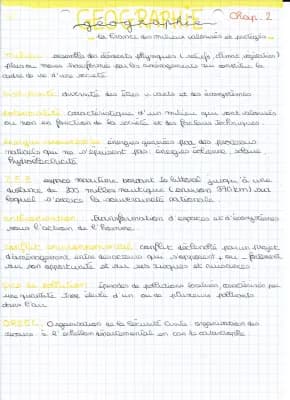 GEOGRAPHIE Chap. 2
géographie
la France des milieux valorisés et protégés
milieu ensemble des éléments physiques (relief, climat, végétation)
plus ou moins transformé par les aménagements qui constitue le
cadre de vie d'une société
biodiversité diversité des êtres vivants et des écosystèmes
potentialité caractéristique d'un milieu qui sont valorisés
ou non en fonction de la société et des facteurs techniques.
énergie renouvelable énergies générées par des processus
naturels qui ne s'épuisent pas: énergies éolienne, solaire
l'hydroélectricité
Z.E.E. espace maritime bordant le littoral jusqu'à une
distance de 200 milles nautique (environ 370 km) sur
lequel s'exerce la souveraineté nationale.
anthropisation transformation d'espaces et d'écosystèmes
sous l'action de l'homme.
conflit environnemental conflit déclenché par un projet
d'aménagement entre des acteurs qui s'opposent + ou - fortement
sur son opportunité et sur ses risques et nuisances
pic de pollution épisodes de pollutions localisés, caractérisés par
une quantité très élevée d'un ou de plusieurs polluants
dans l'air
ORSEC Organisation de la Sécurité Civile: organisation des
secours à l'échelon départemental en cas de catastrophe.